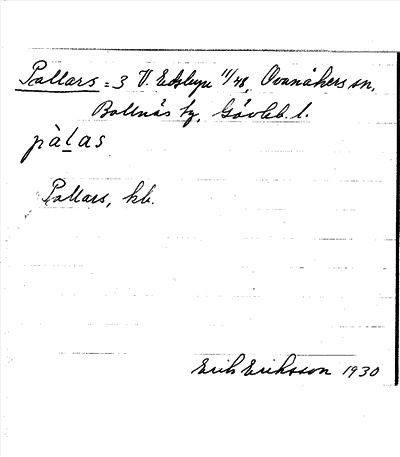 Pallars = 3 V. Edsbyn 11/48, Ovanåkers sn,
Bollnäs tg, Gävleb. l.
pàlas
Pallars, kb.
Erik Eriksson 1930